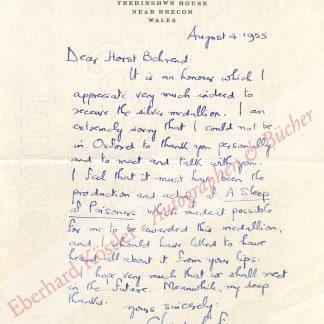 TREBINSHWN HOUSE
NEAR BRECON
WALES
August 4. 1955
Dear Horst Behrend:
It is an honour which I
appreciate very much indeed to
receive the silver medallion. I am
extremely sorry that I could not be
in Oxford to thank you personally
and to meet and talk with you.
I feel that it must have been the
production and acting of A Sleep
of Prisoners which made it possible
for me to be awarded this medallion,
and I should have liked to have
heard all about it from your lips.
I hope very much that we shall meet
in the future. Meanwhile, my deep
thanks.
Yours sincerely,
Eberhard Köstler - Autographen & Bücher